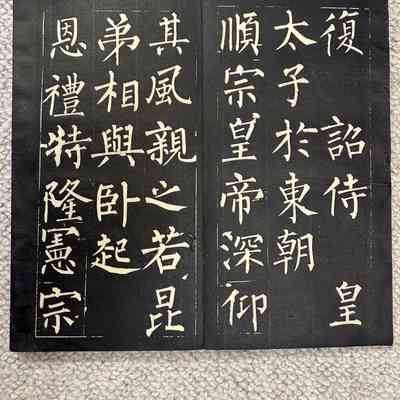 復 詔侍 皇
太子於東朝
順宗皇帝深仰
其風親之若昆
弟相與卧起
恩禮特隆憲宗